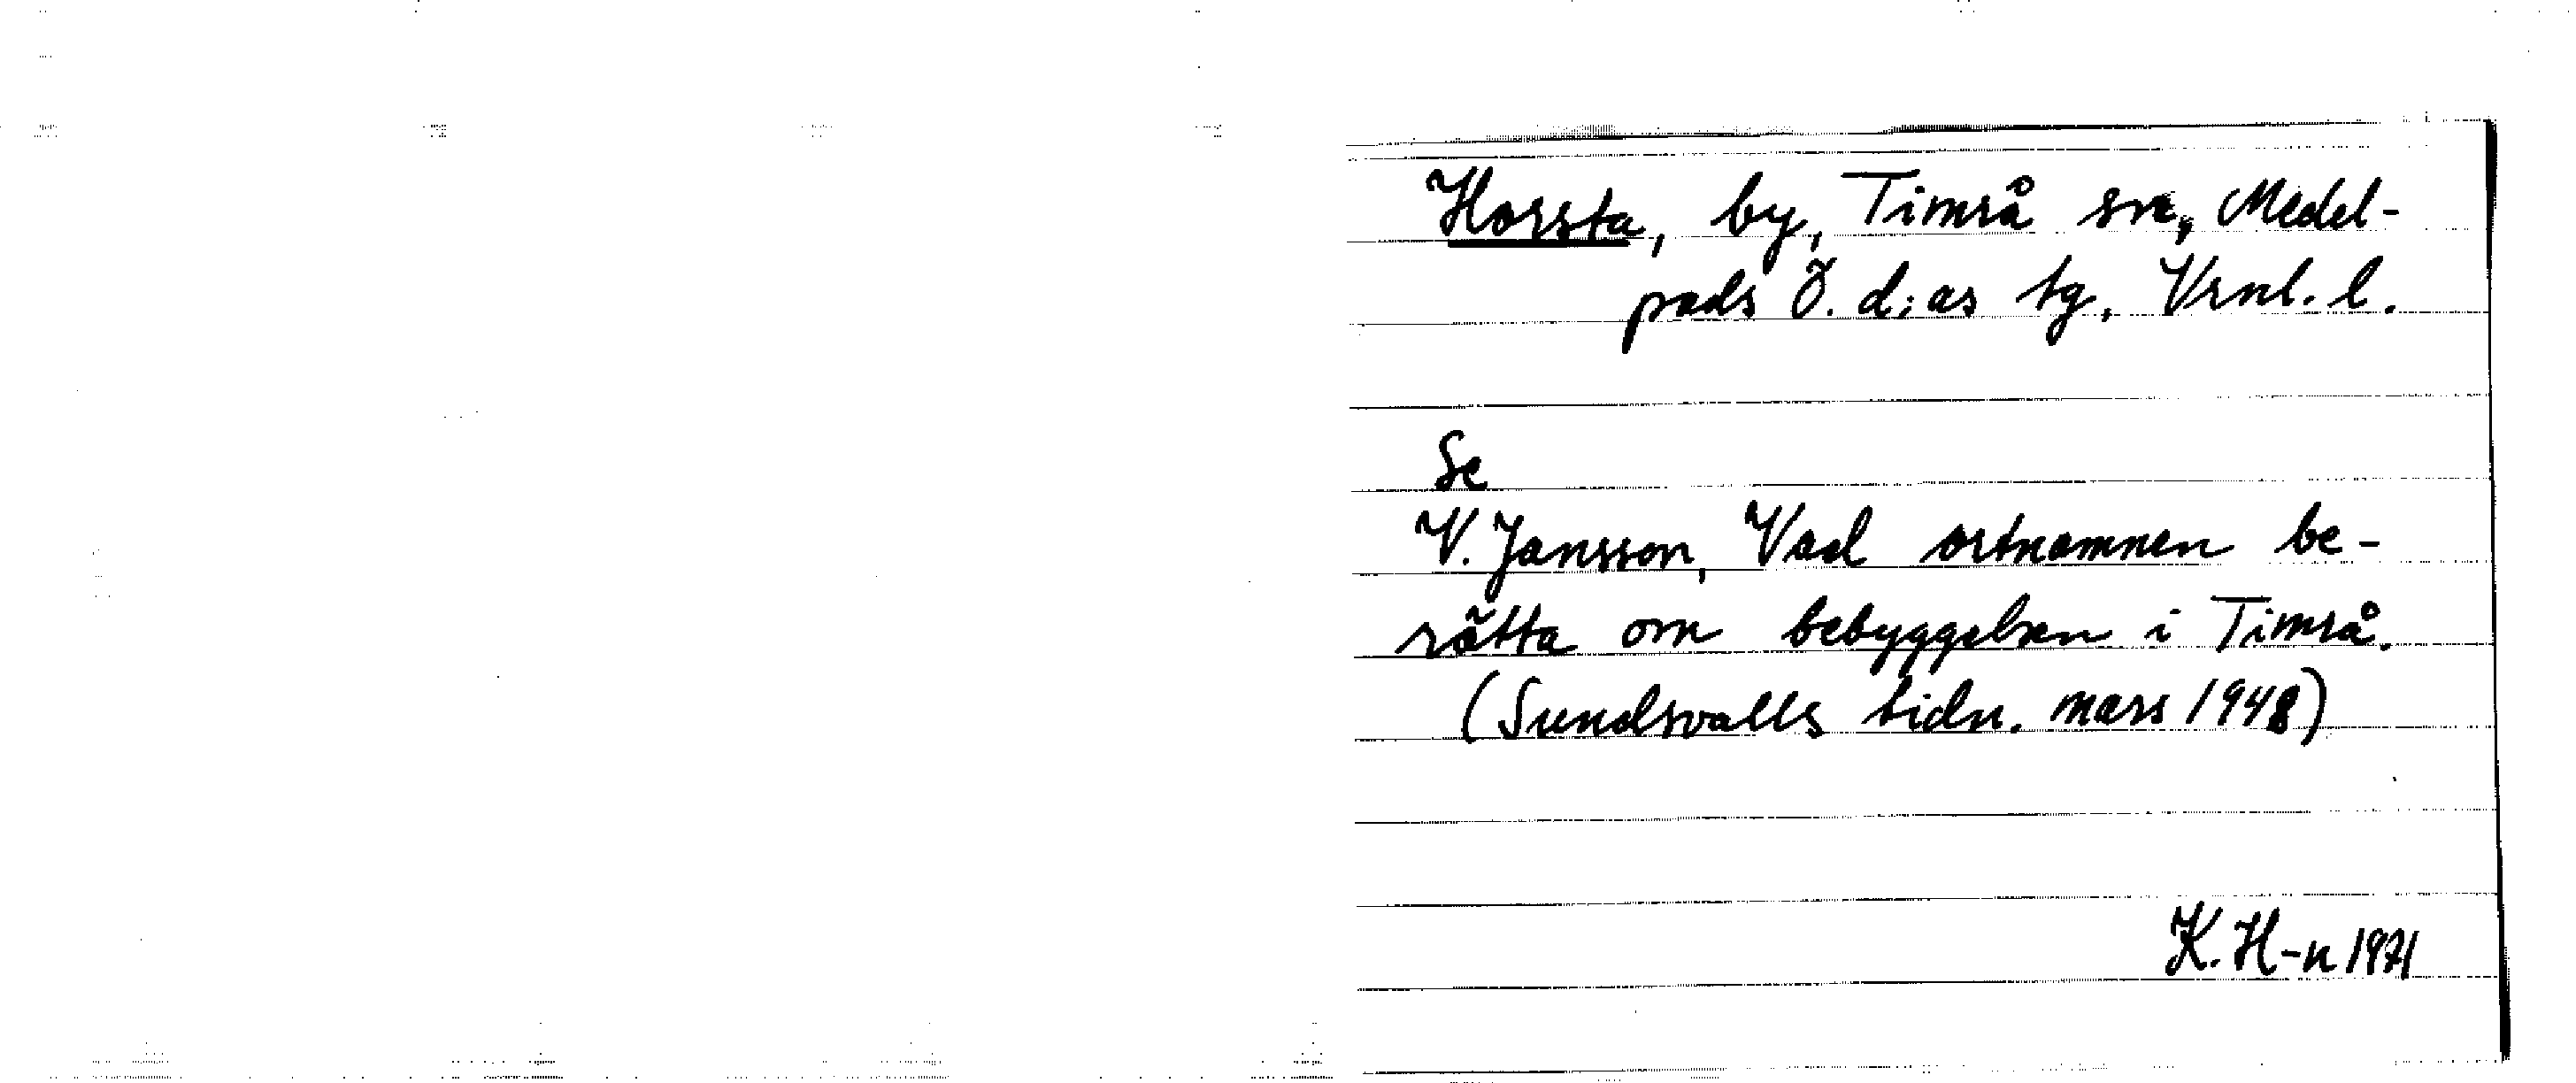 Horsta, by, Timrå sn, Medel-
pads Ö. d:as tg, Vrnl. l.
Se
V. Jansson, Vad ortnamnen be-
rätta om bebyggelsen i Timrå.
(Sundsvalls tidn. mars 1948)
K. H-n 1971